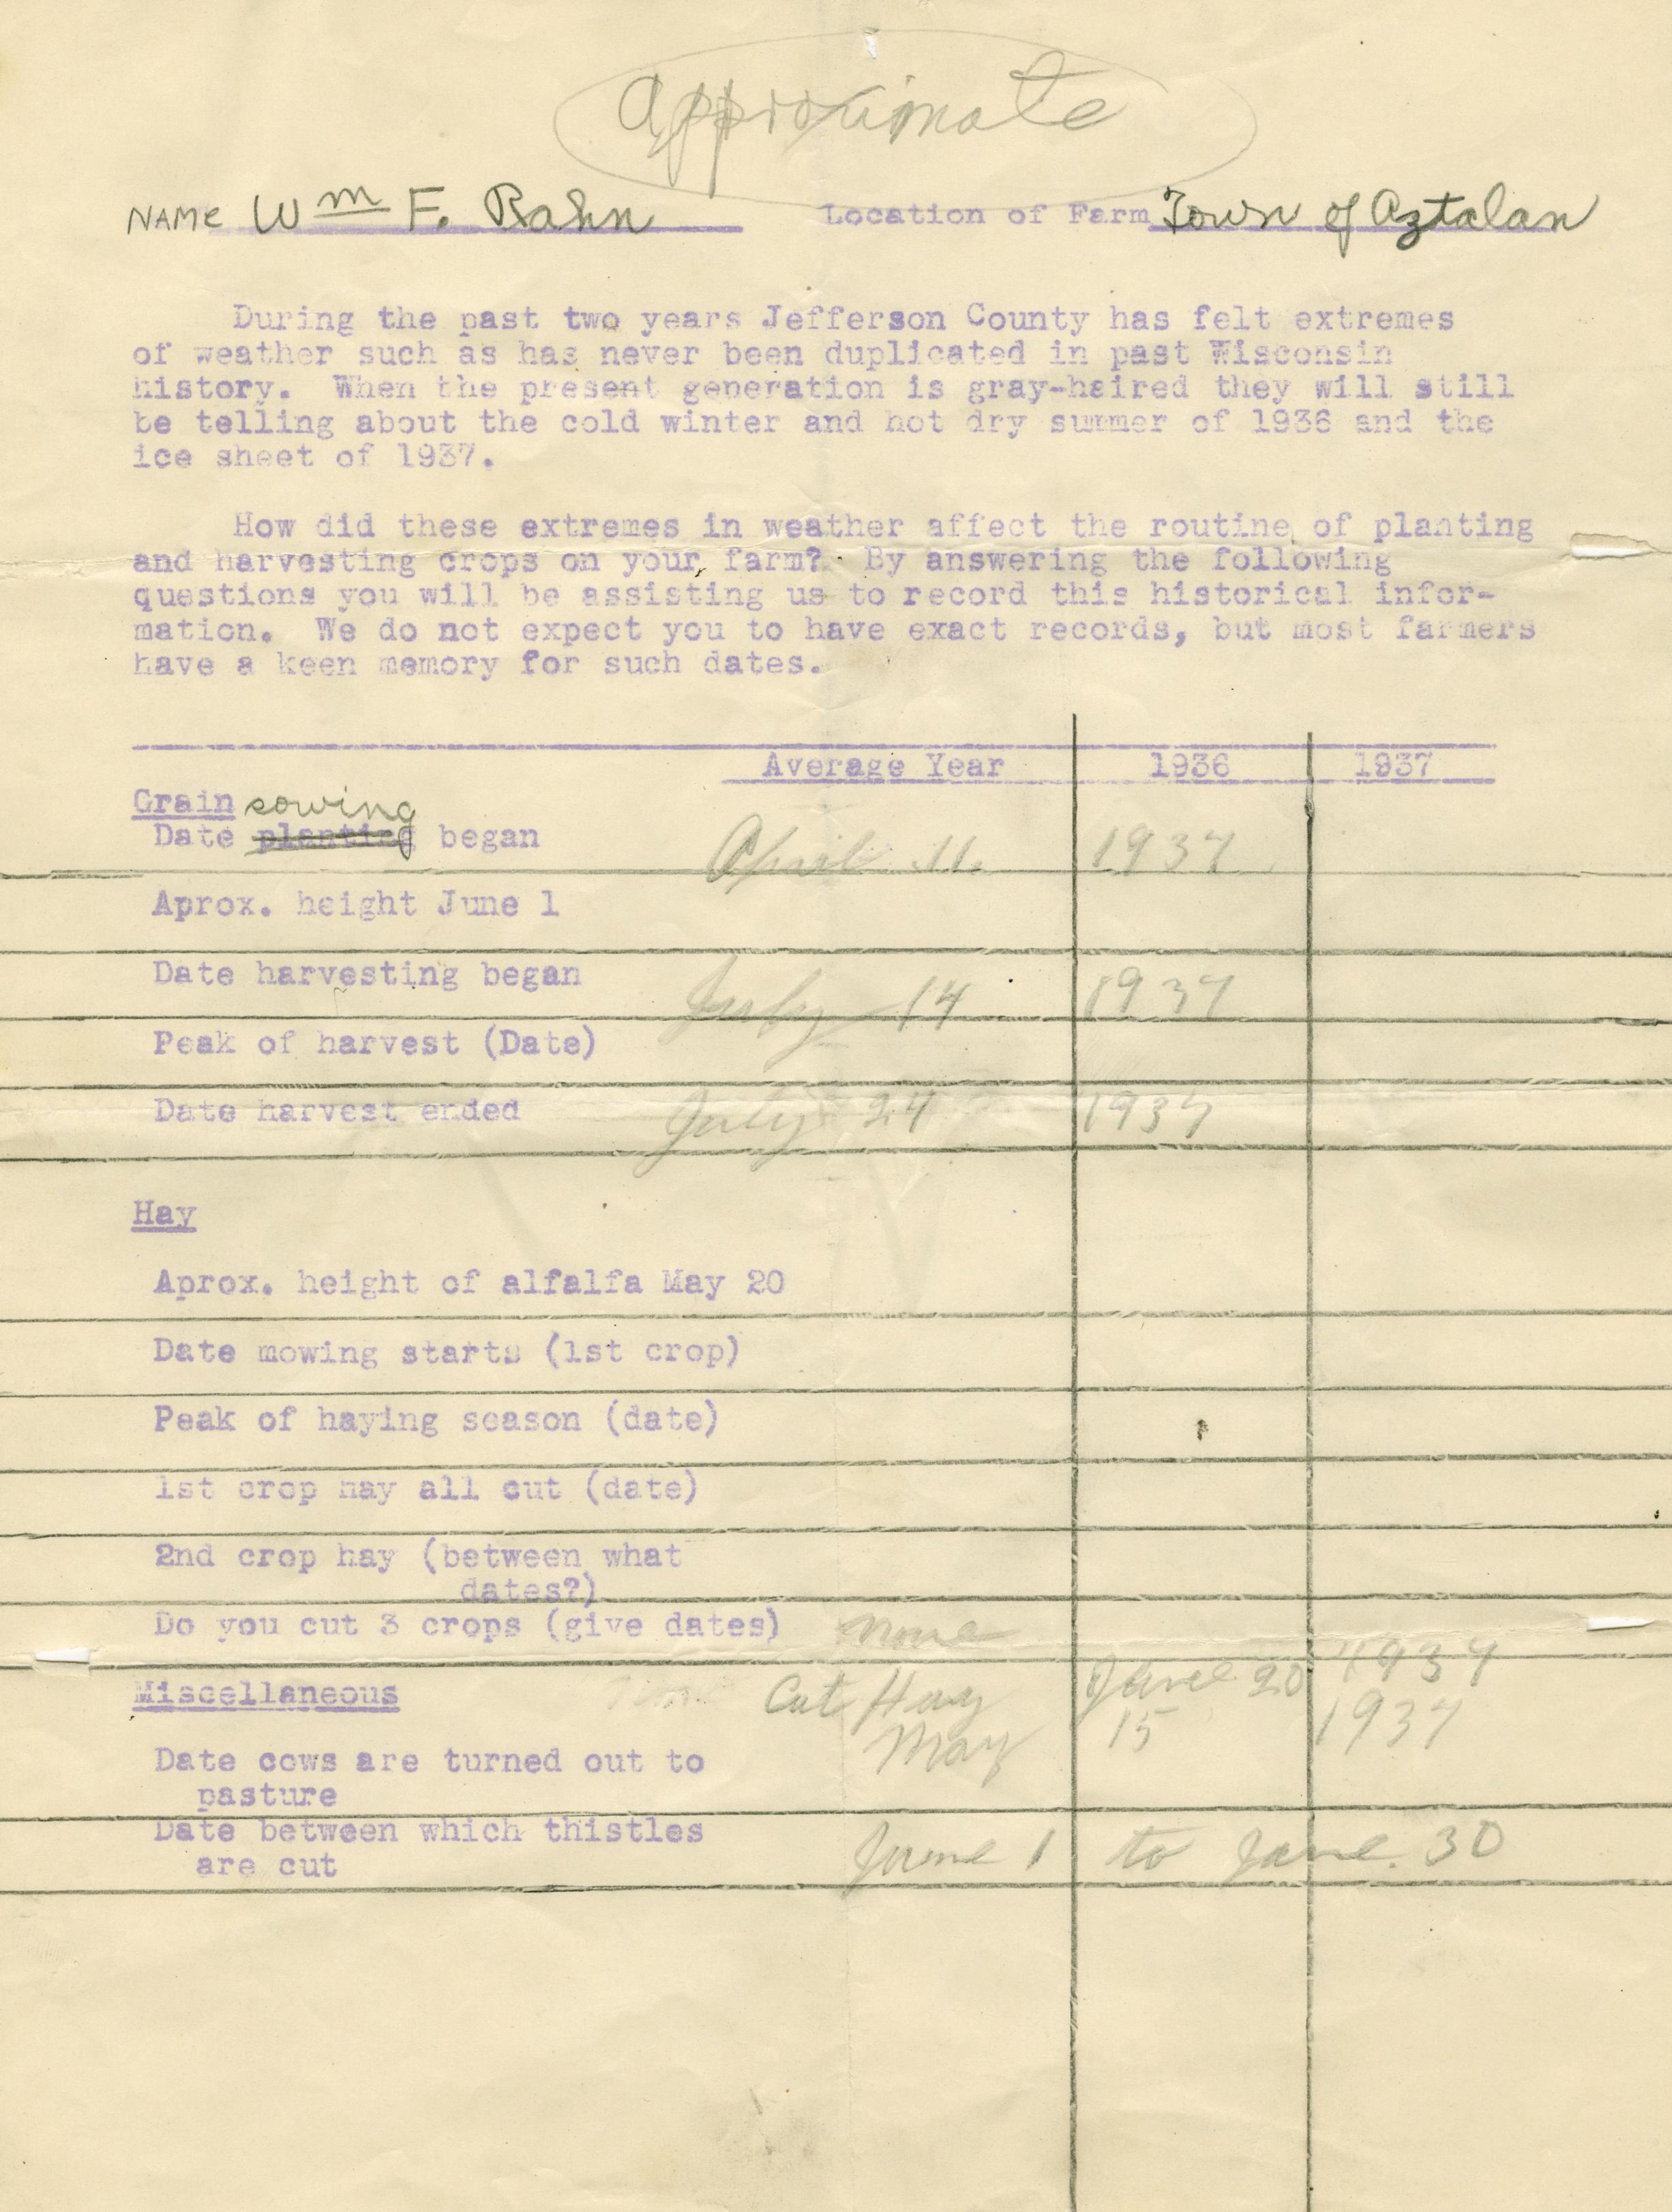 Approximate
NAME Wm F. Rahn Location of Farm Town of Aztalan
During the past two years Jefferson County has felt extremes
of weather such as has never been duplicated in past Wisconsin
history. When the present generation is gray-haired they will still
be telling about the cold winter and hot dry summer of 1936 and the
ice sheet of 1937.
How did these extremes in weather affect the routine of planting
and harvesting crops on your farm? By answering the following
questions you will be assisting us to record this historical infor-
mation. We do not expect you to have exact records, but most farmers
have a keen memory for such dates.
Average Year 1936 1937
Grain sowing
Date planting began April 11. 1937
Aprox. height June 1
Date harvesting began July 14 1937
Peak of harvest (Date)
Date harvest ended July 24 1937
Hay
Aprox. height of alfalfa May 20
Date mowing starts (1st crop)
Peak of haying season (date)
1st crop hay all cut (date)
2nd crop hay (between what
dates?)
Do you cut 3 crops (give dates) none
Miscellaneous Cut Hay June 20 1937
May 15 1937
Date cows are turned out to
pasture
Date between which thistles
are cut June 1 to June. 30